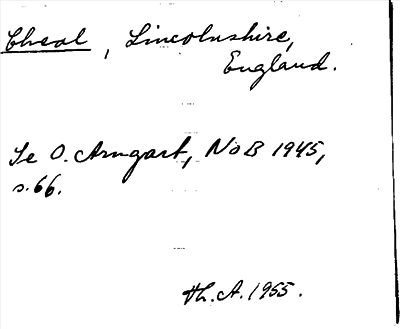 Cheal, Lincolnshire,
England.
Se O. Arngart, NoB 1945,
s. 66.
Th. A. 1955.